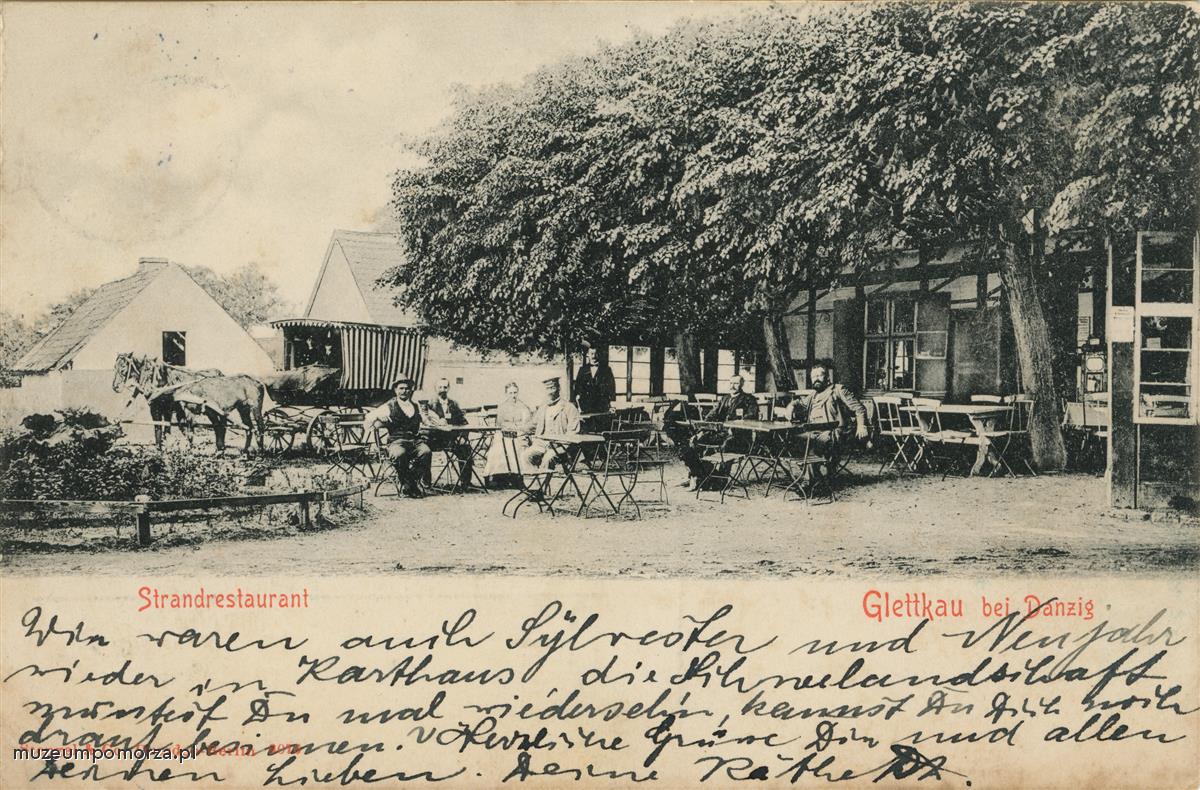 Strandrestaurant
Glettkau bei Danzig
Wir waren auch Sylvester und Neujahr
wieder in Karthaus die Schneelandschaft
müntest Du mal wiedersehn, kannst Du Dich noch
drauf besinnen. Herzliche Grüße Dir und allen
Deinen Lieben. Deine Käthe
muzeumpomorza.pl